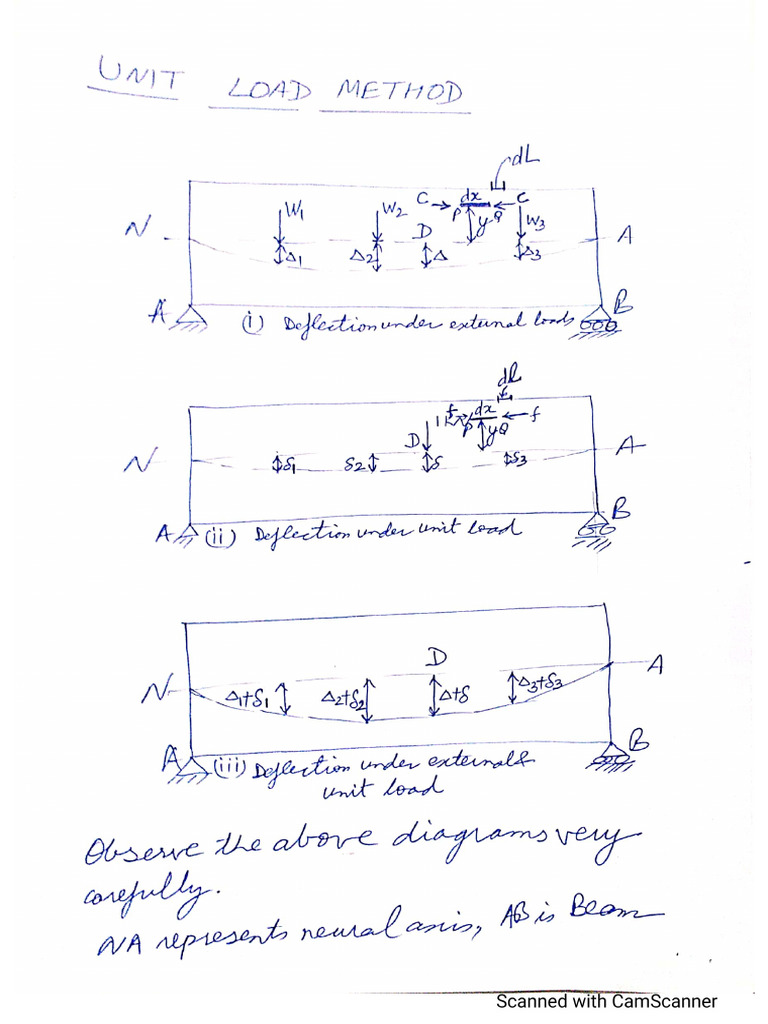 UNIT LOAD METHOD
dL
C dx C
P Q
N W1 W2 D y W3 A
Δ1 Δ2 Δ Δ3
A B
(i) Deflection under external loads
dl
f dx f
1kN P Q
D y
N δ1 δ2 δ δ3 A
B
A (ii) Deflection under unit load
D
N Δ1+δ1 Δ2+δ2 Δ+δ Δ3+δ3 A
A B
(iii) Deflection under external &
unit load
Observe the above diagrams very
carefully.
NA represents neural axis, AB is Beam
Scanned with CamScanner